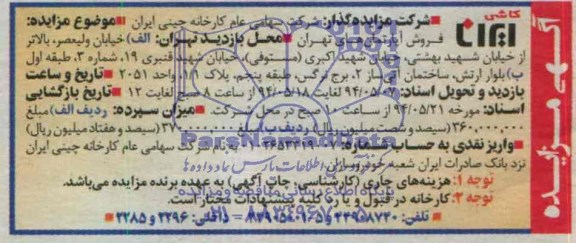 آگهی مزایده
کاشی
ایرانا
شرکت مزایده‌گذار: شرکت سهامی عام کارخانه چینی ایران ■موضوع مزایده:
فروش آپارتمان‌های تهران ■محل بازدید تهران: الف) خیابان ولیعصر، بالاتر
از خیابان شهید بهشتی، خیابان شهید اکبری (مستوفی)، خیابان شهید قنبری ۱۹، شماره ۳، طبقه اول
ب) بلوار ارتش، ساختمان ۲، برج نرگس، طبقه پنجم، پلاک واحد ۲۰۵۱ ■تاریخ و ساعت
بازدید و تحویل اسناد: ۹۴/۰۵/۰۷ لغایت ۹۴/۰۵/۱۸ از ساعت ۸ صبح لغایت ۱۲ ■تاریخ بازگشایی
اسناد: مورخه ۹۴/۰۵/۲۱ از ساعت ۱۰ صبح در محل شرکت. ■میزان سپرده: ردیف الف) مبلغ
۳۶۰,۰۰۰,۰۰۰ (سیصد و شصت میلیون ریال) ردیف ب) مبلغ (سیصد و هفتاد میلیون ریال)
■واریز نقدی به حساب شماره: بنام شرکت سهامی عام کارخانه چینی ایران
نزد بانک صادرات ایران شعبه خودروسازان
توجه ۱: هزینه‌های جاری (کارشناسی، چاپ آگهی) به عهده برنده مزایده می‌باشد.
توجه ۲: کارخانه در قبول و یا رد کلیه پیشنهادات مختار است.
■ تلفن: داخلی: ۲۲۹۶ و ۲۲۸۵ ■
پارس نماد داده‌ها